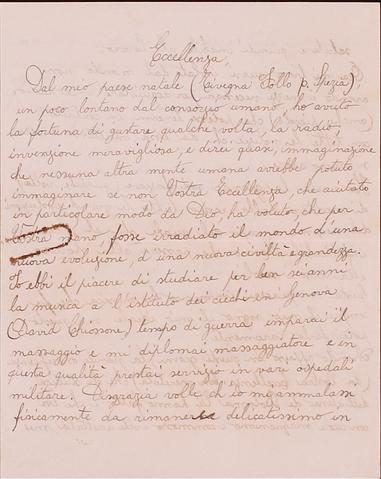 Eccellenza,
Dal mio paese natale (Tivegna Follo p. Spezia),
un poco lontano dal consorzio umano, ho avuto
la fortuna di gustare qualche volta, la radio,
invenzione meravigliosa, e direi quasi, immaginazione
che nessuna altra mente umana avrebbe potuto
immaginare se non Vostra Eccellenza, che aiutato
in particolare modo da Dio, ha voluto, che per
Vostra mano, fosse irradiato il mondo d'una
nuova evoluzione, d'una nuova civiltà e grandezza.
Io ebbi il piacere di studiare per ben sei anni
la musica a l'istituto dei ciechi in Genova
(David Chiossone) tempo di guerra imparai il
massaggio e mi diplomai massaggiatore e in
questa qualità prestai servizio in vari ospedali
militare. Disgrazia volle ch'io mi ammalassi
fisicamente da rimanere delicatissimo in